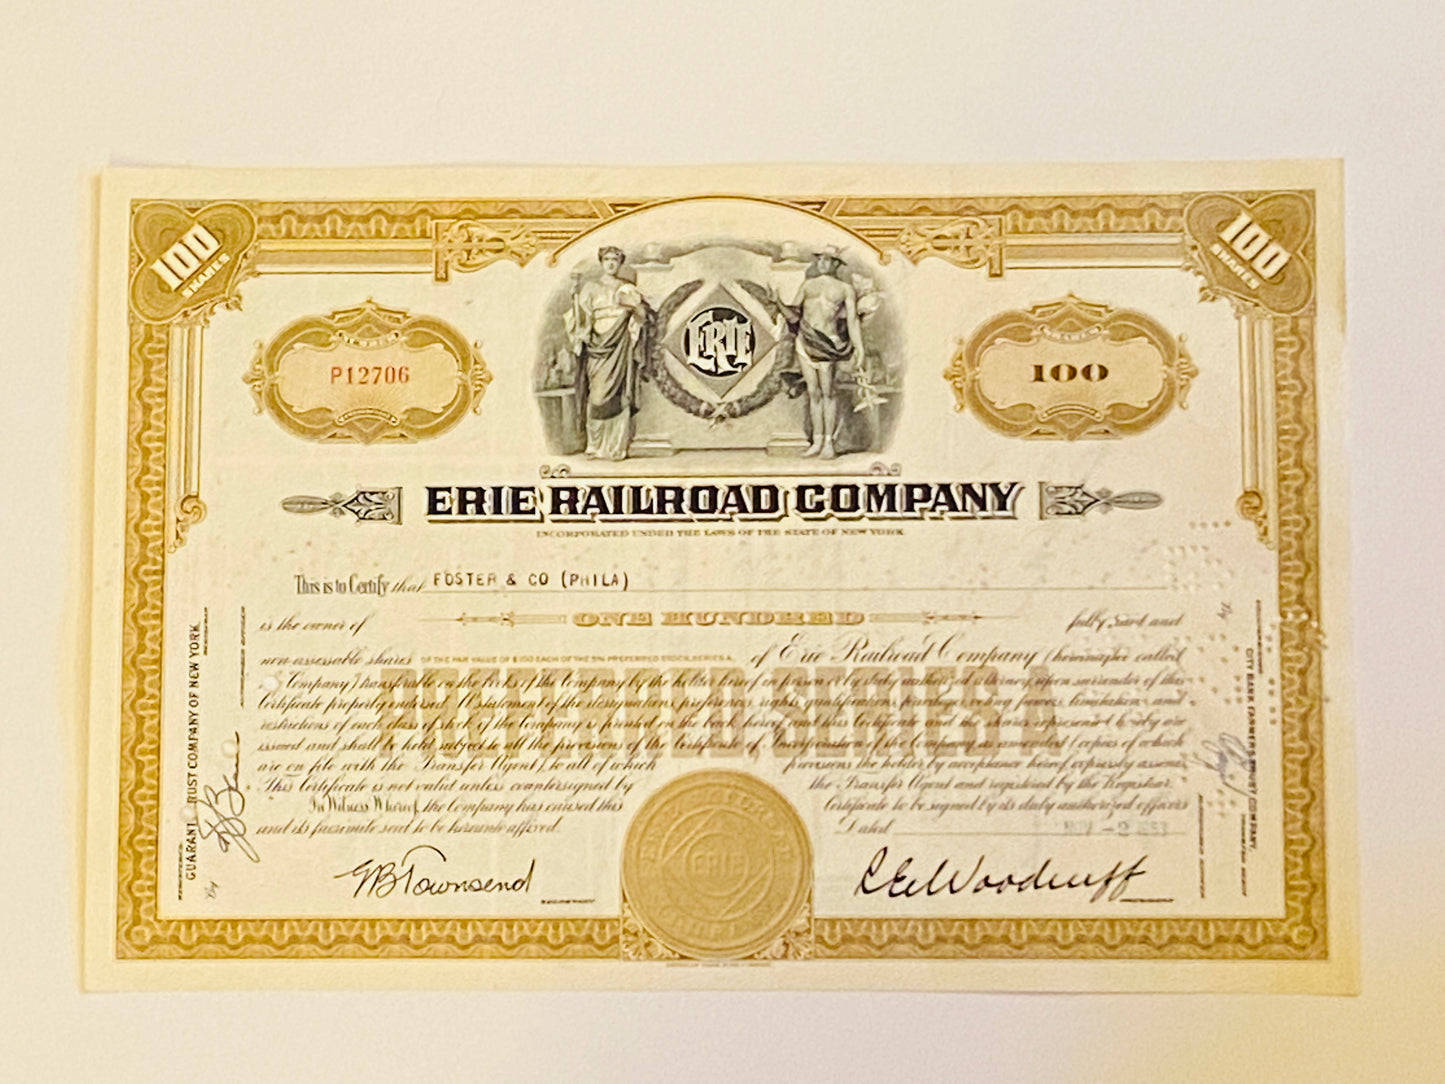 100
SHARES
100
SHARES
NUMBER
SHARES
P12706
ERIE
100
ERIE RAILROAD COMPANY
INCORPORATED UNDER THE LAWS OF THE STATE OF NEW YORK
This is to Certify that FOSTER & CO (PHILA)
is the owner of ONE HUNDRED fully paid and
non-assessable shares OF THE PAR VALUE OF $100 EACH OF THE 5% PREFERRED STOCK, SERIES A, of Erie Railroad Company (hereinafter called
Company) transferable on the books of the Company by the holder hereof in person or by duly authorized attorney, upon surrender of this
Certificate properly endorsed. A statement of the designations, preferences, rights, qualifications, privileges, voting powers, limitations and
restrictions of each class of stock of the Company is printed on the back hereof and this Certificate and the shares represented hereby are
issued and shall be held subject to all the provisions of the Certificate of Incorporation of the Company as amended (copies of which
are on file with the Transfer Agent), to all of which provisions the holder by acceptance hereof expressly assents.
This Certificate is not valid unless countersigned by the Transfer Agent and registered by the Registrar.
In Witness Whereof, the Company has caused this Certificate to be signed by its duly authorized officers
and its facsimile seal to be hereunto affixed. Dated NOV -2 1953
GUARANT RUST COMPANY OF NEW YORK
By
CITY BANK FARMERS TRUST COMPANY
By
G B Townsend
SECRETARY
ERIE
R E Woodruff